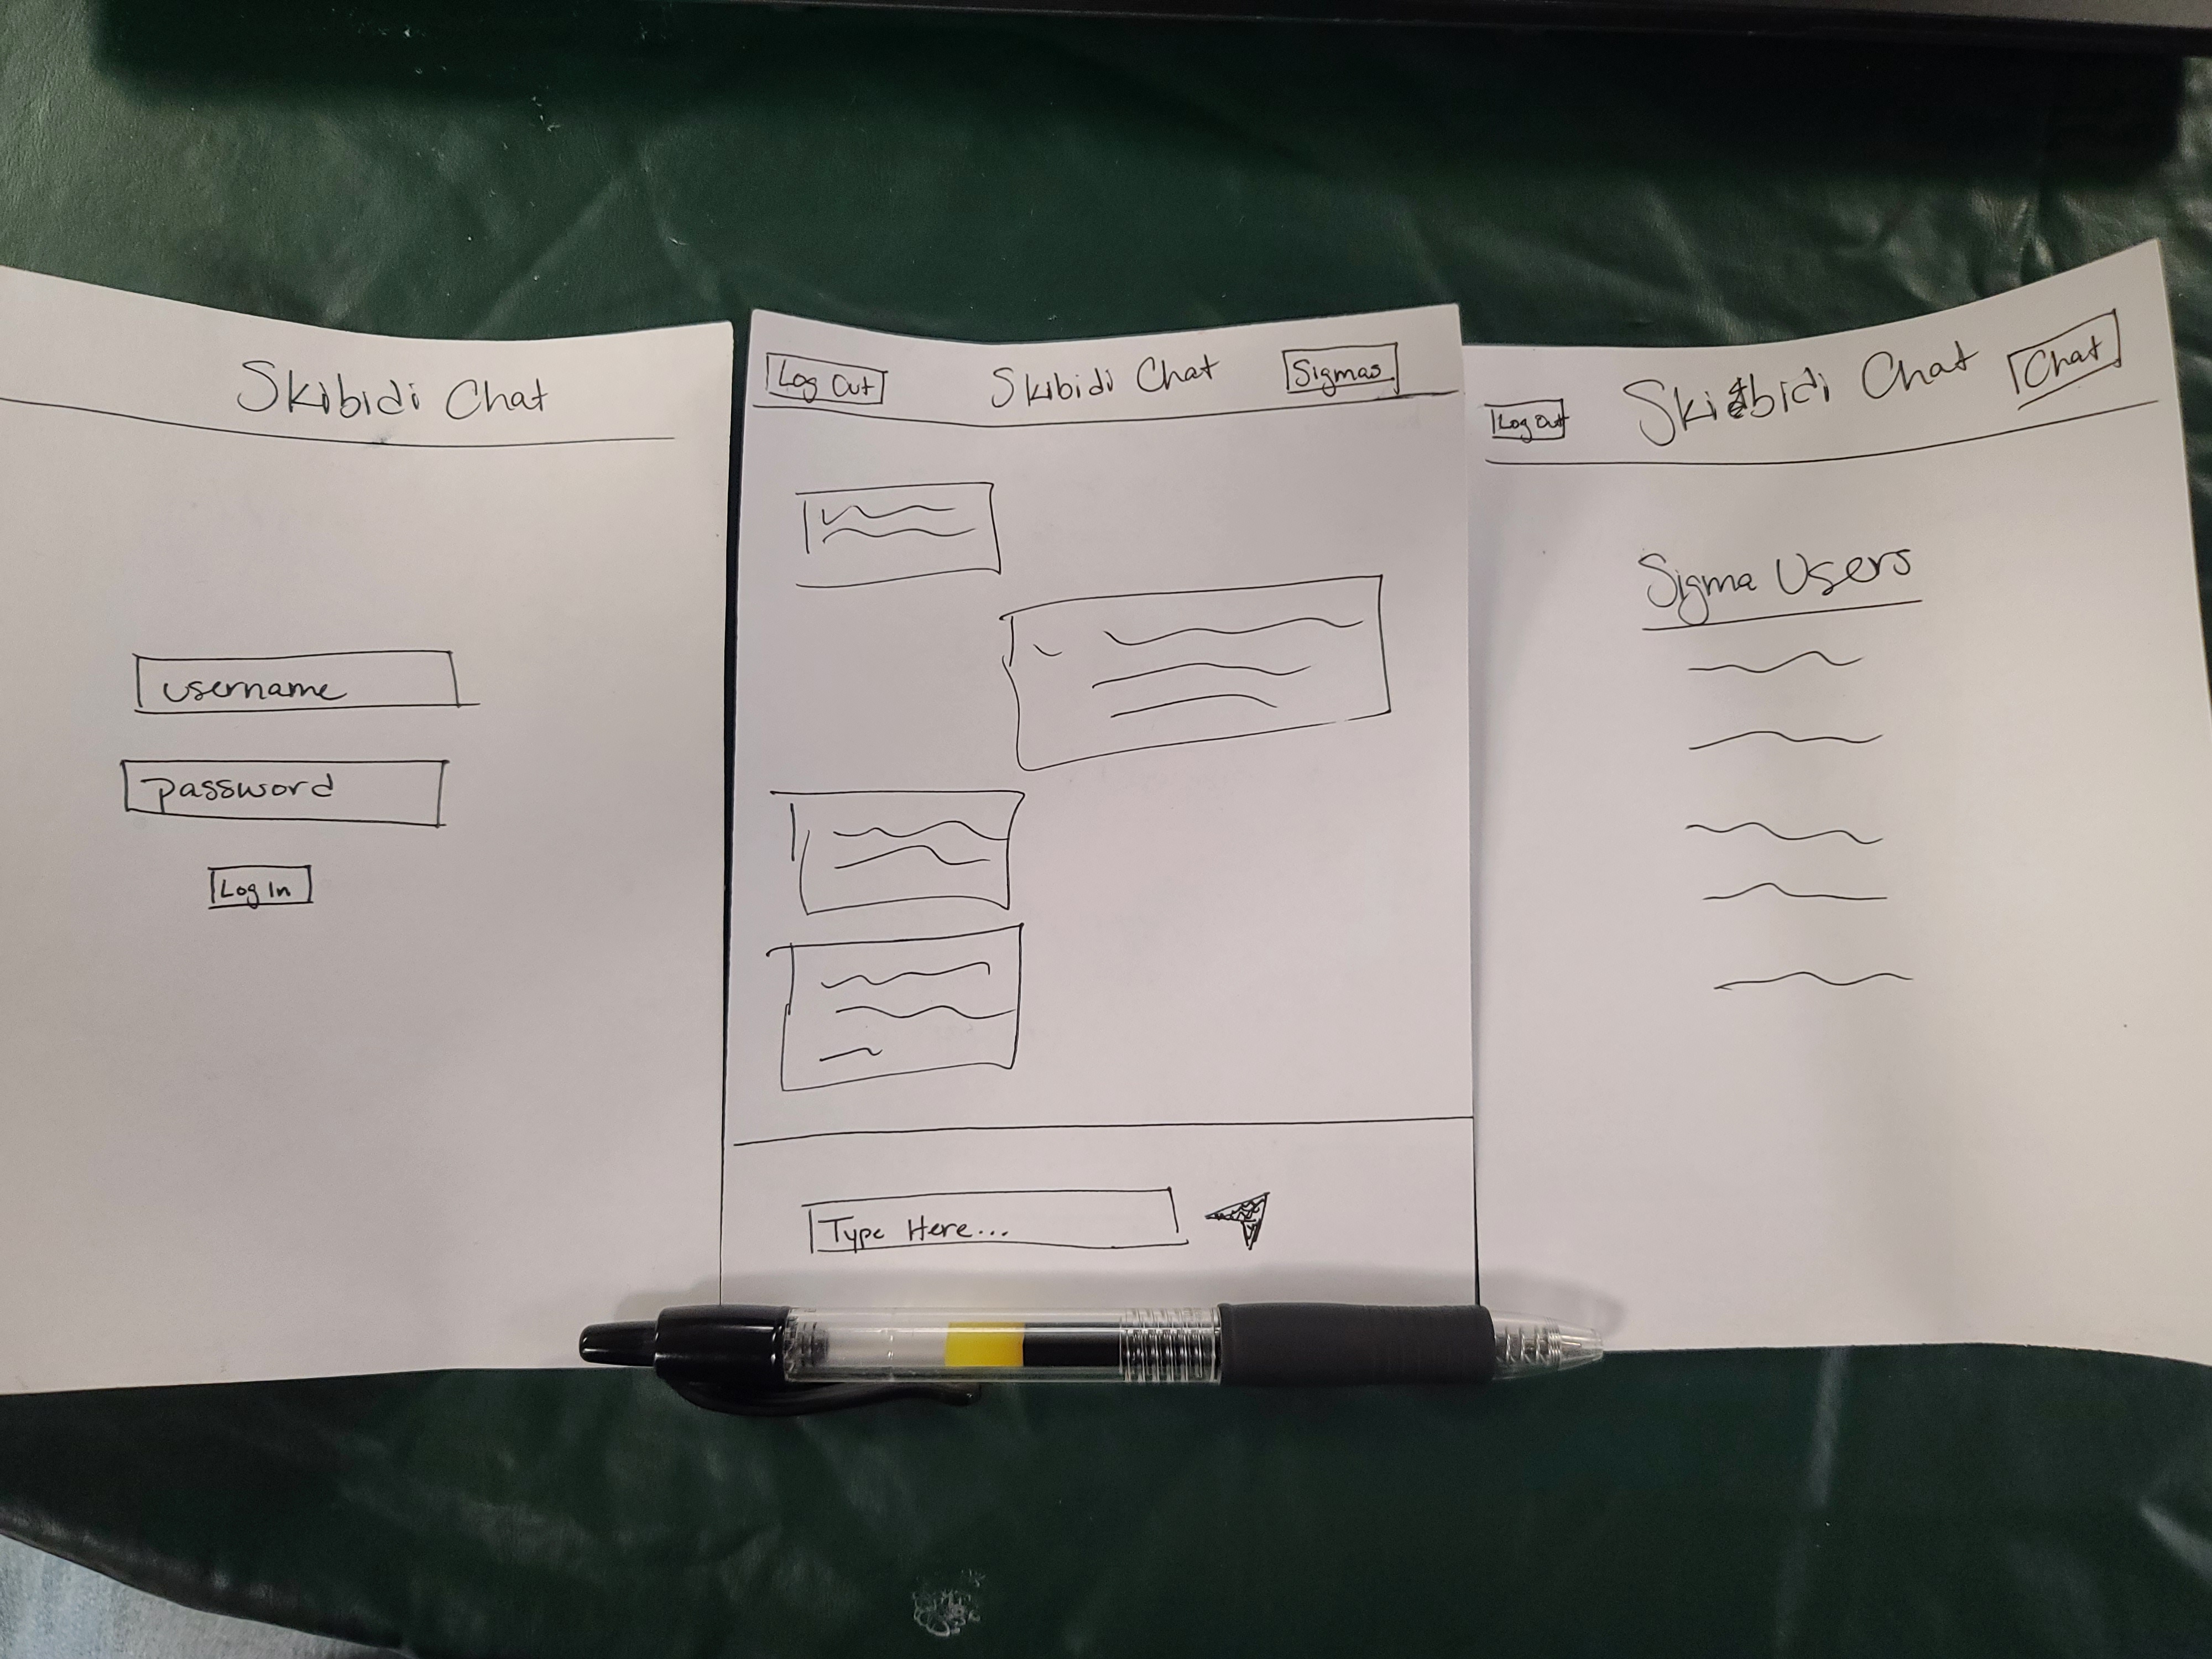 Skibidi Chat
username
password
Log In
Log Out
Skibidi Chat
Sigmas
Type Here...
Log Out
Skibidi Chat
Chat
Sigma Users